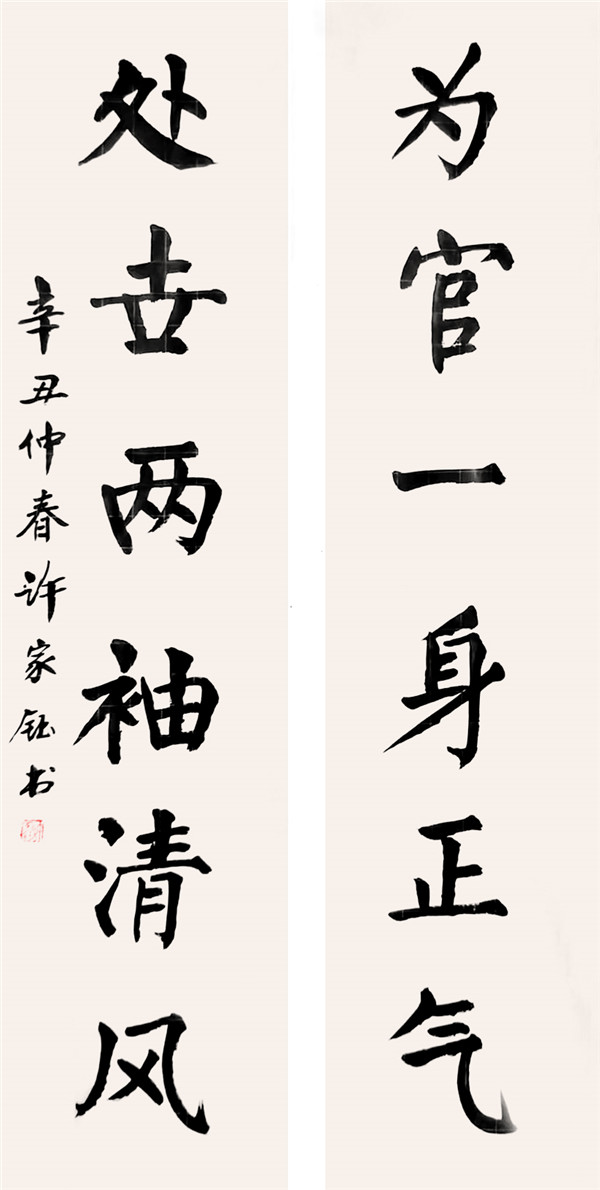 为官一身正气
处世两袖清风
辛丑仲春许家钰书